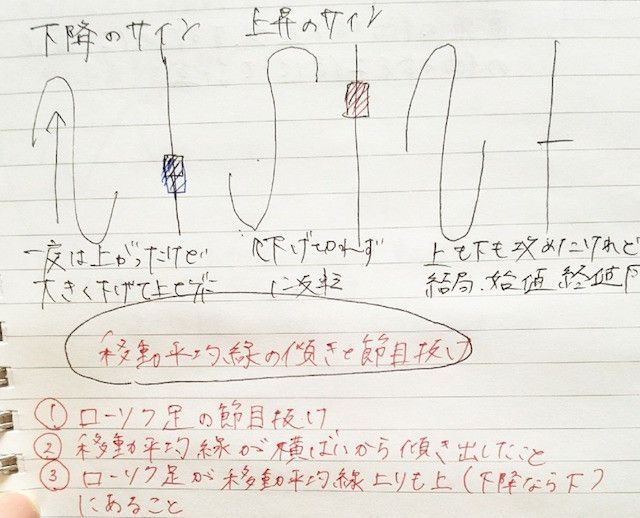 下降のサイン
上昇のサイン
一度は上がったけど
大きく下げて上ヒゲに
下げ切れず
に反転
上も下も攻めたけれど
結局、始値 終値同
移動平均線の傾きと節目抜け
① ローソク足の節目抜け
② 移動平均線が横ばいから傾き出したこと
③ ローソク足が移動平均線上りも上(下降なら下)
にあること